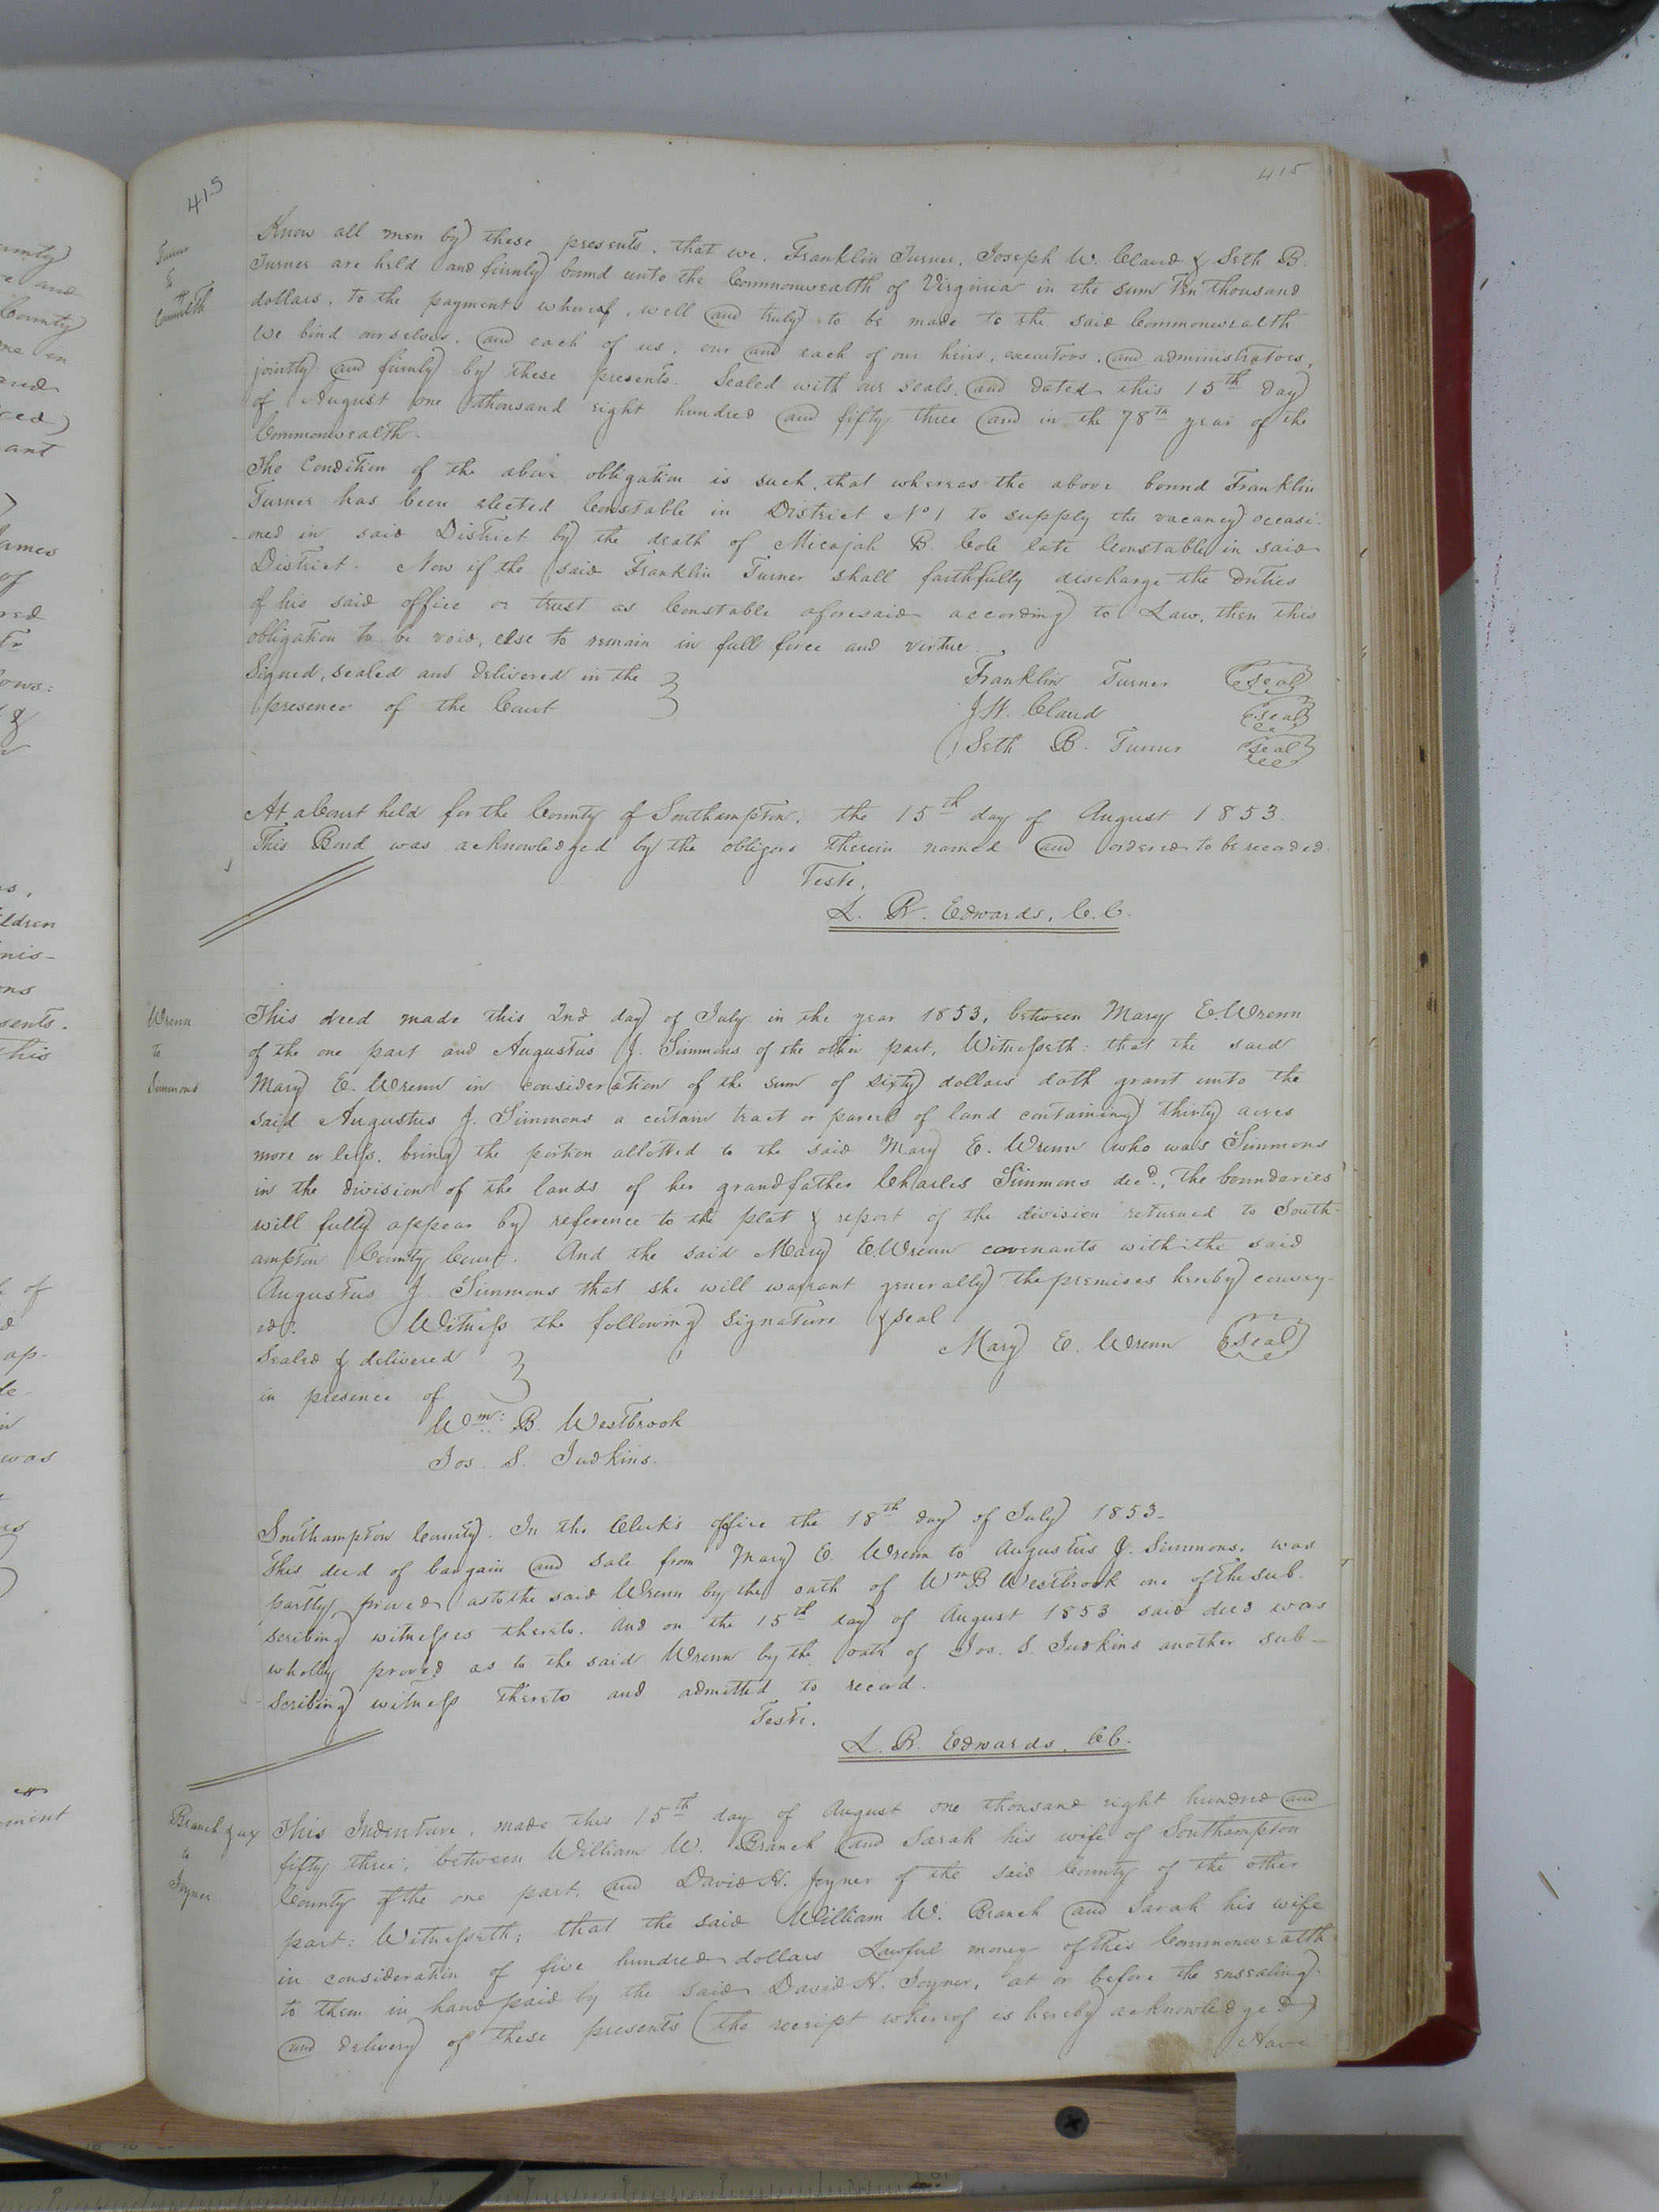 415
415
Turner
to
Commlth
Know all men by these presents, that we, Franklin Turner, Joseph W. Claud & Seth B.
Turner are held and firmly bound unto the Commonwealth of Virginia in the sum Ten thousand
dollars, to the payment whereof, well and truly to be made to the said Commonwealth
We bind ourselves, and each of us, our and each of our heirs, executors, and administrators,
jointly and firmly by these presents. Sealed with our seals, and dated this 15th day
of August one thousand eight hundred and fifty three and in the 78th year of the
Commonwealth.
The Condition of the above obligation is such, that whereas the above bound Franklin
Turner has been elected Constable in District No 1 to supply the vacancy occasi-
-oned in said District by the death of Micajah B. Cole late Constable in said
District. Now if the said Franklin Turner shall faithfully discharge the duties
of his said office or trust as Constable aforesaid according to Law, then this
obligation to be void, else to remain in full force and virtue.
Signed, sealed and delivered in the
presence of the Court
Franklin Turner seal
J.W. Claud seal
Seth B. Turner seal
At a Court held for the County of Southampton, the 15th day of August 1853.
This Bond was acknowledged by the obligors therein named and ordered to be recorded.
Teste,
L. R. Edwards, C.C.
Wrenn
to
Simmons
This deed made this 2nd day of July in the year 1853, between Mary E. Wrenn
of the one part and Augustus J. Simmons of the other part, Witnesseth: that the said
Mary E. Wrenn in consideration of the sum of sixty dollars doth grant unto the
said Augustus J. Simmons a certain tract or parcel of land containing thirty acres
more or less, being the portion allotted to the said Mary E. Wrenn who was Simmons
in the division of the lands of her grandfather Charles Simmons decd., the boundaries
will fully appear by reference to the plat & report of the division returned to South-
ampton County Court. And the said Mary E. Wrenn covenants with the said
Augustus J. Simmons that she will warrant generally the premises hereby convey-
ed. Witness the following signature & seal
Mary E. Wrenn seal
Sealed & delivered
in presence of
Wm: B. Westbrook
Jos. S. Judkins.
Southampton County. In the Clerk's office the 18th day of July 1853-
This deed of bargain and sale from Mary E. Wrenn to Augustus J. Simmons, was
partly proved as to the said Wrenn by the oath of Wm B Westbrook one of the sub-
scribing witnesses thereto. And on the 15th day of August 1853 said deed was
wholly proved as to the said Wrenn by the oath of Jos. S. Judkins another sub-
scribing witness thereto and admitted to record.
Teste.
L. R. Edwards, CC.
Branch & ux
to
Joyner
This Indenture, made this 15th day of August one thousand eight hundred and
fifty three, between William W. Branch and Sarah his wife of Southampton
County of the one part, and David H. Joyner of the said County of the other
part: Witnesseth; that the said William W. Branch and Sarah his wife
in consideration of five hundred dollars Lawful money of this Commonwealth
to them in hand paid by the said David H. Joyner, at or before the ensealing
and delivery of these presents (the receipt whereof is hereby acknowledged)
Have